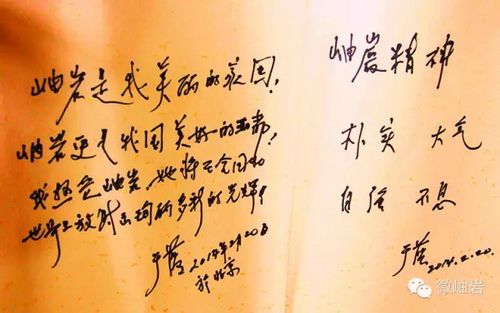 岫岩是我美丽的家园!
岫岩更是我国美好的玉都!
我热爱岫岩,她将在全国和
世界上放射出绚丽多彩的光辉!
于蓝 2014年2月20日
於北京
岫巖精神
朴实 大气
自强 不息
于蓝 2014.2.20.
微岫岩